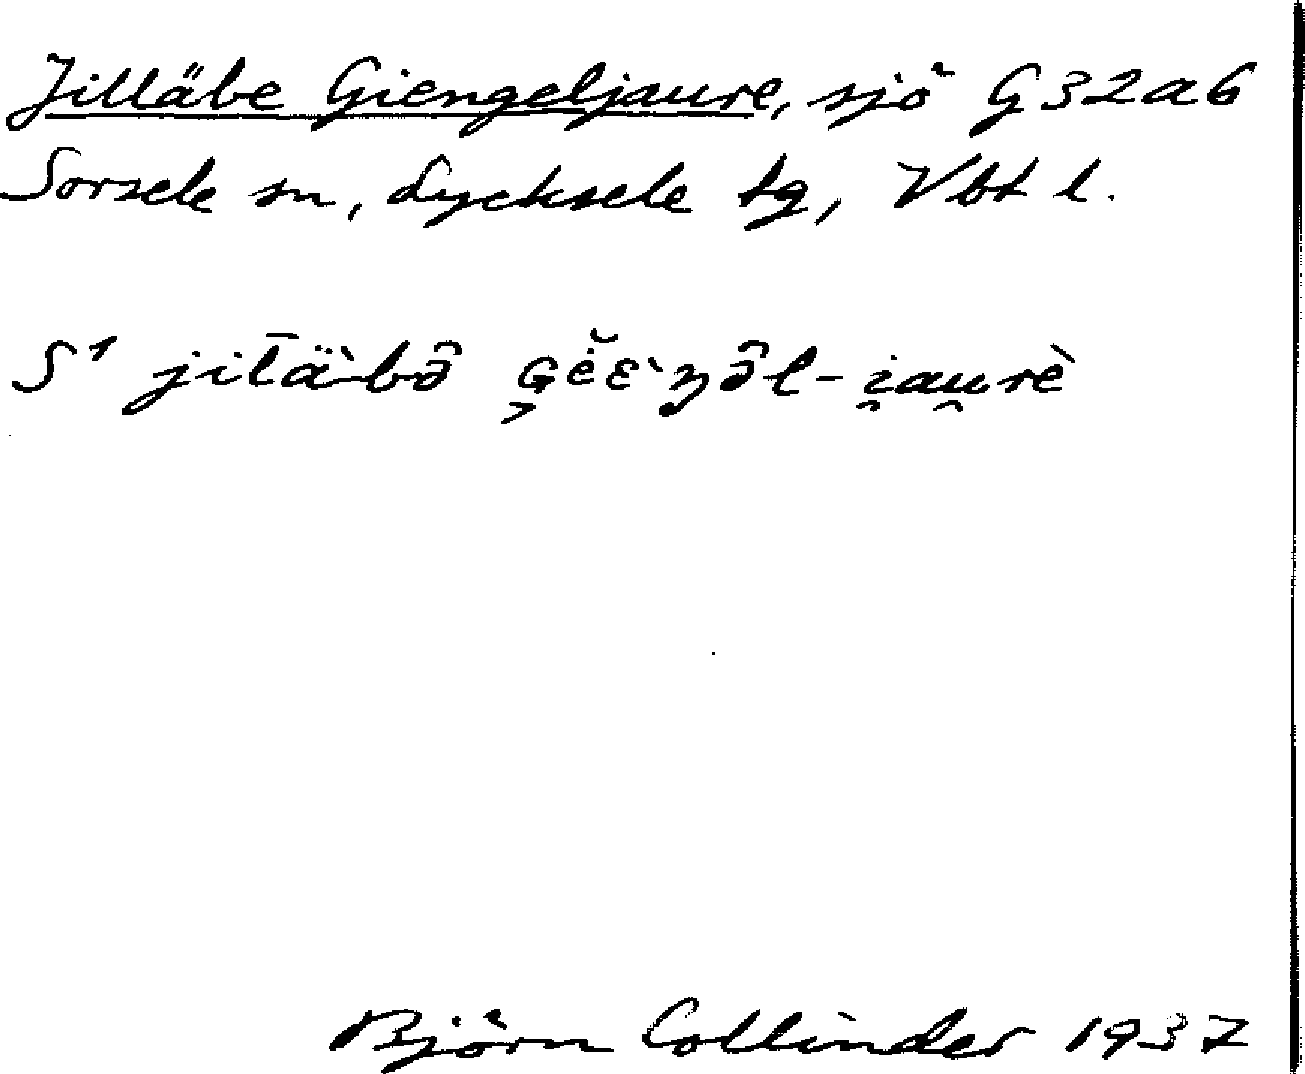 Jilläbe Giengeljaure, sjö G32a6
Sorsele sn, Lycksele tg, Vbt l.
S¹ jil̄ä̀bə̑ G̨ĕ̇ɛ̀ŋə̑l-i̯au̯rè
Björn Collinder 1937